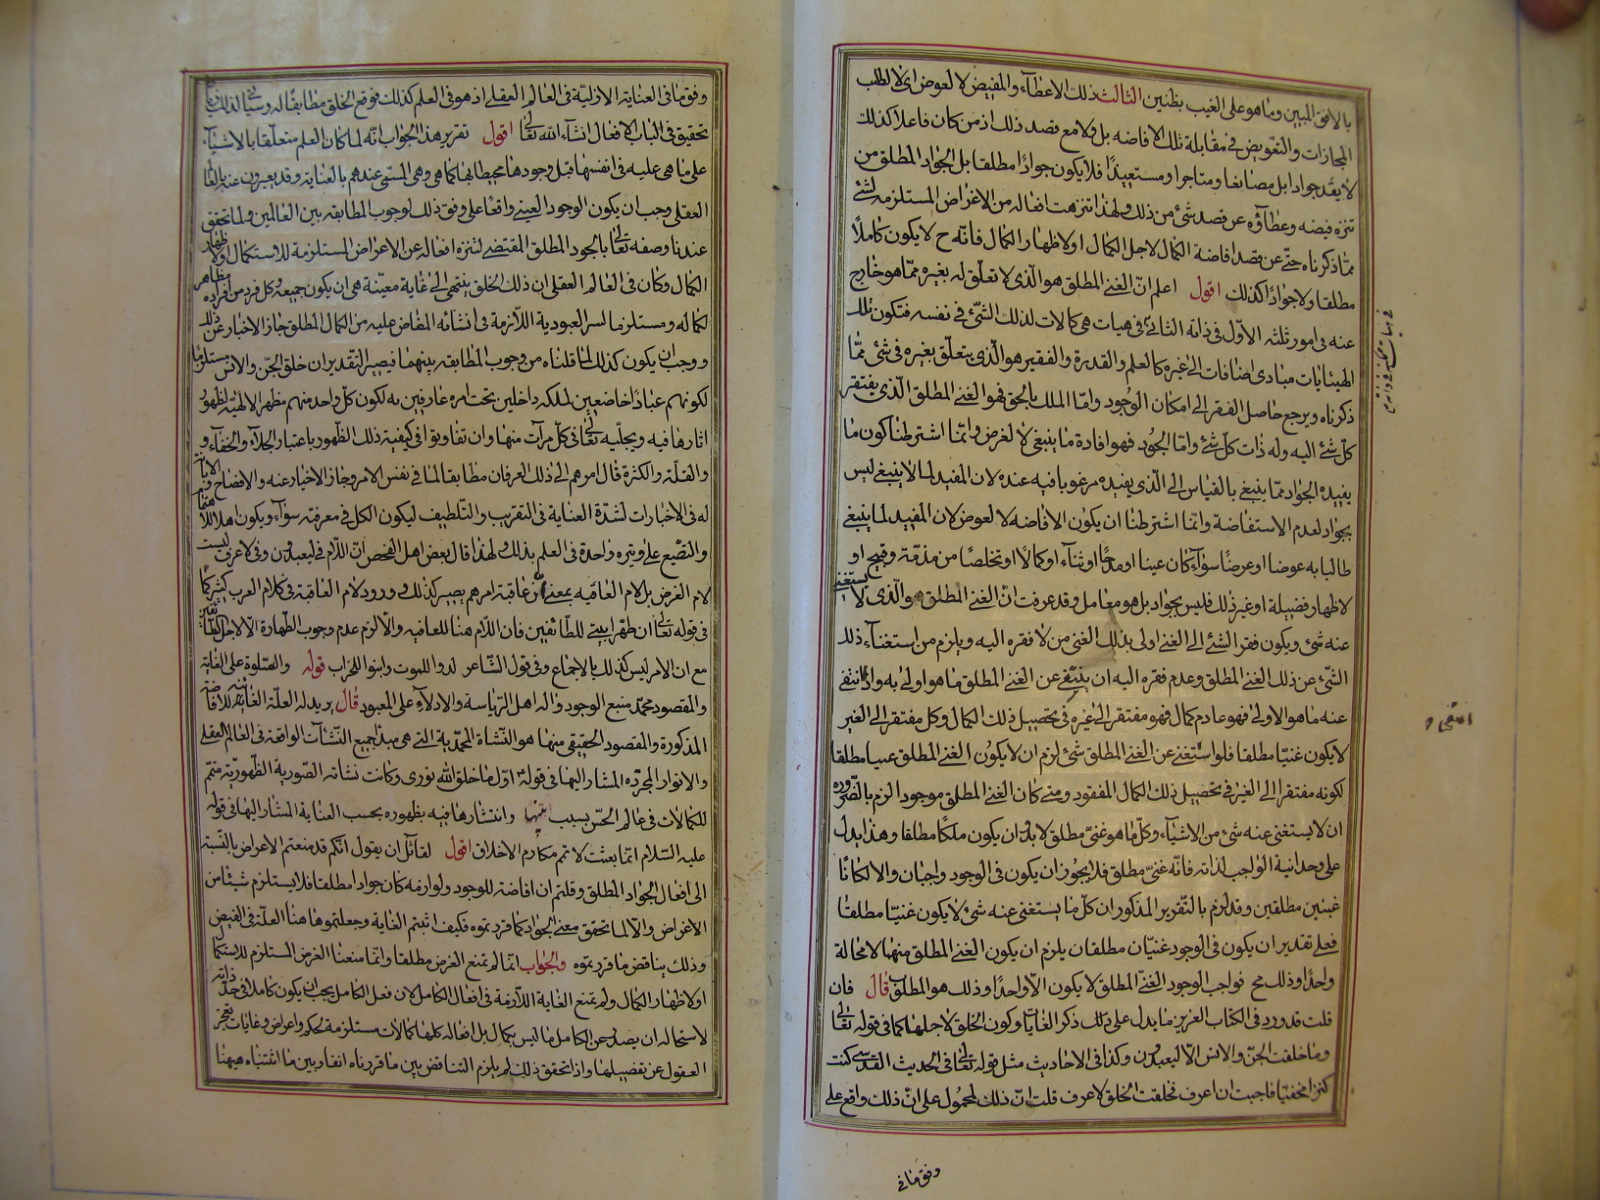 بالافق المبين وماهو على الغيب بظنين الثالث ذلك الاعطاء والمفيض لا لعوض اى لا لطلب
المجازات والتعويض فى مقابلة تلك الافاضه بل ولا مع قصد ذلك اذ من كان فاعلا كذلك
لا يعد جوادا بل مصانعا ومتاجرا ومستعيذا فلا يكون جوادا مطلقا بل الجواد المطلق من
تنزه فيضه وعطاؤه عن قصد شئ من ذلك ولهذا تنزهت افعاله من الاغراض المستلزمه لشئ
مما ذكرناه حتى عن قصد افاضة الكمال لاجل الكمال او لاظهار الكمال فانه ح لا يكون كاملا
مطلقا ولا جوادا كذلك اقول اعلم ان الغنى المطلق هو الذى لا تعلق له بغيره مما هو خارج
عنه فى امور ثلثه الاول فى ذاته الثانى فى هيات هى كمالات لذلك الشئ فى نفسه فتكون تلك
الهيئات مبادى اضافات الى غيره كالعلم والقدرة والفقير هو الذى يتعلق بغيره فى شئ مما
ذكرناه ويرجع حاصل الفقر الى امكان الوجود واما الملك بالحق فهو الغنى المطلق الذى يفتقر
كل شئ اليه وله ذات كل شئ واما الجود فهو افادة ما ينبغى لا لغرض وانما اشترطنا كون ما
يفيده الجواد مما ينبغى بالقياس الى الذى يفيده مرغوبا فيه عنده لان المفيد لما لا ينبغى ليس
بجواد لعدم الاستفاضة وانما اشترطنا ان يكون الافاضه لا لعوض لان المفيد لما ينبغى
طالبا به عوضا او عرضا سواء كان عينا او مدحا او ثناء او كمالا او تخلصا من مذمة وقبح او
لاظهار فضيلة او غير ذلك فليس بجواد بل هو معامل وقد عرفت ان الغنى المطلق والذى لا يستغنى
عنه شئ ويكون فقر الشئ الى الغنى اولى بذلك الغنى من لا فقره اليه ويلزم من استغناء ذلك
الشئ عن ذلك الغنى المطلق وعدم فقره اليه ان ينتفى عن الغنى المطلق ما هو اولى به واذا انتفى
عنه ما هو الاولى فهو عادم كمال فهو مفتقر الى غيره فى تحصيل ذلك الكمال وكل مفتقر الى الغير
لا يكون غنيا مطلقا فلو استغنى عن الغنى المطلق شئ لزم ان لا يكون الغنى المطلق غنيا مطلقا
لكونه مفتقرا الى الغير فى تحصيل ذلك الكمال المفقود ومتى كان الغنى المطلق موجودا لزم بالضروره
ان لا يستغنى عنه شئ من الاشياء وكل ما هو غنى مطلق لابد وان يكون ملكا مطلقا وهذا يدل
على وحدانية الواجب لذاته فانه غنى مطلق فلا يجوز ان يكون فى الوجود واجبان والا لكانا
غنيين مطلقين وقد لزم بالتقرير المذكور ان كل ما يستغنى عنه شئ لا يكون غنيا مطلقا
فعلى تقدير ان يكون فى الوجود غنيان مطلقان يلزم ان يكون الغنى المطلق منهما لا محالة
واحدا وذلك مح فواجب الوجود الغنى المطلق لا يكون الا واحدا وذلك هو المطلق قال فان
قلت قد ورد فى الكتاب العزيز ما يدل على ذلك ذكر الغايات وكون الخلق لاجلها كما فى قوله تعالى
وما خلقت الجن والانس الا ليعبدون وكذا فى الاحاديث مثل قوله تعالى فى الحديث القدسى كنت
كنزا مخفيا فاحببت ان اعرف فخلقت الخلق لاعرف قلت ان ذلك لمحمول على ان ذلك واقع على
وفق ما فى
وفق ما فى العناية الازلية فى العالم العقلى اذ هو فى العلم كذلك فوقع الخلق مطابقا له وسيأتى لذلك زيادة
تحقيق فى الباب الافعال انشاء الله تعالى اقول تقرير هذا الجواب انه لما كان العلم متعلقا بالاشياء
على ما هى عليه فى انفسها قبل وجودها محيطا بها كما هى وهى المسمى عندهم بالعناية وقد يعبرون عنه بالعالم
العقلى وجب ان يكون الوجود العينى واقعا على وفق ذلك لوجوب المطابقه بين العالمين ولما تحقق
عندنا وصفه تعالى بالجود المطلق المقتضى لتنزه افعاله عن الاعراض المستلزمة للاستكمال ولاظهار
الكمال وكان فى العالم العقلى ان ذلك الخلق ينتهى الى غاية معينة هى ان يكون جميعه وكل فرد من افراده مظاهر
لكماله ومستلزما لسر العبودية اللازمة فى انشائه المفاض عليه من الكمال المطلق جاز الاخبار عن ذلك
ووجب ان يكون كذلك لما قلناه من وجوب المطابقه بينهما فيصير التقدير ان خلق الجن والانس مستلزما
لكونهم عبادا خاضعين لملكه داخلين تحت امره عارفين به لكون كل واحد منهم مظهر الالهية لظهور
اثارها فيه وبجليه تعالى فى كل مرآت منها وان تفاوتوا فى كيفية ذلك الظهور باعتبار الجلاء والخفاء و
والقلة والكثرة فال امرهم الى ذلك العرفان مطابقا لما فى نفس الامر وجاز الاخبار عنه والافصاح
له فى الاخبارات لشدة العناية فى التقريب والتلطيف ليكون الكل فى معرفته سواء ويكون اهلا
والتضيع على وتره واحدة فى العلم بذلك ولهذا قال بعض اهل الفحص ان اللام فى ليعبدون وفى لاعرف ليست
لام الغرض بل لام العاقبه بمعنى ان عاقبة امرهم يصير كذلك وورود لام العاقبة فى كلام العرب كثير كما
فى قوله تعالى ان طهرا بيتى للطائفين فان اللام هنا للعاقبه والا لزم عدم وجوب الطهارة الا لاجل الطائفين
مع ان الامر ليس كذلك بالاجماع وفى قول الشاعر لدوا للموت وابنوا للخراب قوله والصلوة على الغاية
والمقصود محمد منبع الوجود واله اهل الرياسة والادلاء على المعبود قال يريد له العلة الغائية للافاضة
المذكورة والمقصود الحقيقى منها هو النشاة المحمدية التى هى مبدأ جميع النشآت الواقعة فى العالم العقلى
والانوار المجرده المشار اليها فى قوله اول ما خلق الله نورى وكانت نشاته الصورية الظهورية متمم
للكمالات فى عالم الحس بسبب انتهاء وانتشارها فيه بظهوره بحسب العناية المشار اليها فى قوله
عليه السلام انما بعثت لاتمم مكارم الاخلاق اقول لقائل ان يقول انكم قد منعتم الاعراض بالنسبة
الى افعال الجواد المطلق وقلتم ان افاضته للوجود ولوازمه كان جوادا مطلقا فلا يستلزم شيئا من
الاغراض والا لما تحقق معنى الجواد كما قررتموه فكيف اثبتم الغاية وجعلتموها هنا العلة فى الفيض
وذلك يناقض ما قررتموه والجواب انما لم نمنع الغرض مطلقا وانما منعنا الغرض المستلزم للاستكمال
او لاظهار الكمال ولم نمنع الغاية اللازمة فى افعال الكامل لان فعل الكامل يجب ان يكون كاملا فى حد ذاته
لاستحاله ان يصدر عن الكامل ما ليس بكمال بل افعاله كلها كمالات مستلزمة لحكم واعراض وغايات يعجز
العقول عن تفصيلها واذا تحقق ذلك لم يلزم التناقض بين ما قررناه انفا وبين ما اثبتناه هيهنا